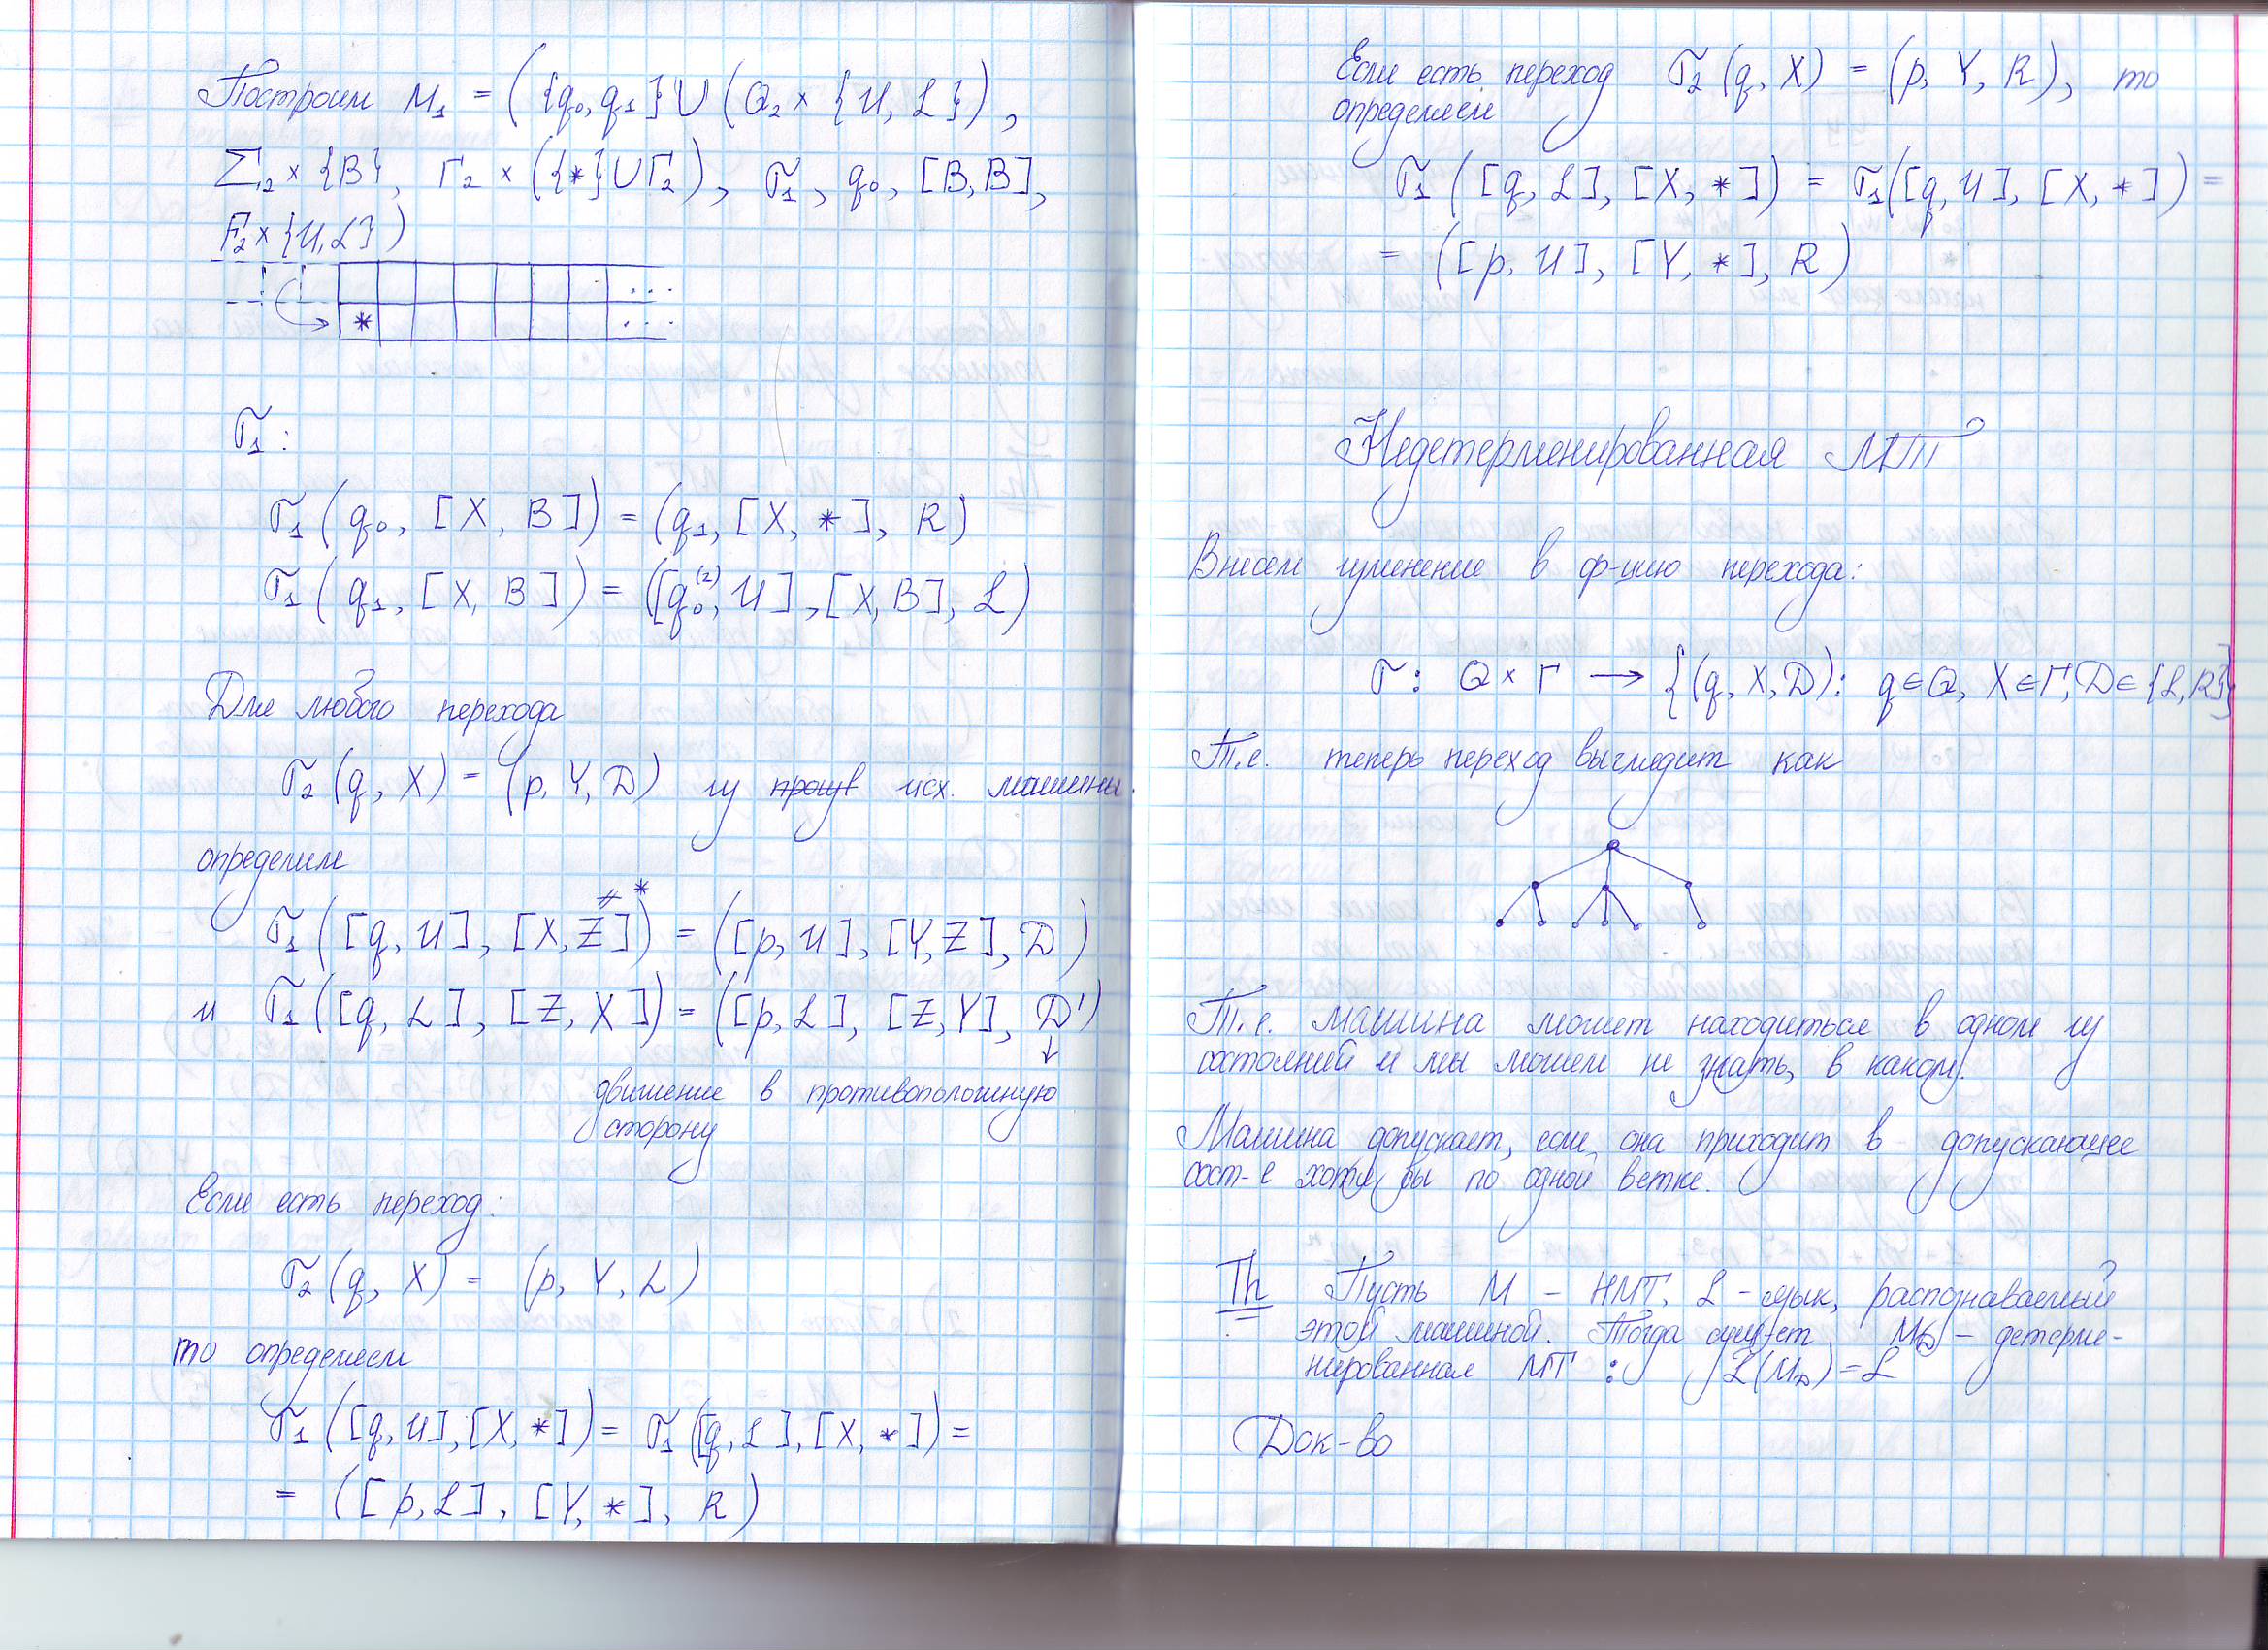 Построим M₁ = ({q₀, q₁} ∪ (Q₂ × {U, L}),
Σ₂ × {B}, Γ₂ × ({*} ∪ Γ₂), δ₁, q₀, [B, B],
F₂ × {U, L})
*
δ₁:
δ₁(q₀, [X, B]) = (q₁, [X, *], R)
δ₁(q₁, [X, B]) = ([q₀⁽²⁾, U], [X, B], L)
Для любого перехода
δ₂(q, X) = (p, Y, D) из исх. машины
определим
≠ *
δ₁([q, U], [X, Z]) = ([p, U], [Y, Z], D)
и δ₁([q, L], [Z, X]) = ([p, L], [Z, Y], D')
↓
движение в противоположную
сторону
Если есть переход:
δ₂(q, X) = (p, Y, L)
то определяем
δ₁([q, U], [X, *]) = δ₁([q, L], [X, *]) =
= ([p, L], [Y, *], R)
Если есть переход δ₂(q, X) = (p, Y, R), то
определяем
δ₁([q, L], [X, *]) = δ₁([q, U], [X, *]) =
= ([p, U], [Y, *], R)
Недетерменированная МТ
Внесем изменение в ф-цию перехода:
δ: Q × Γ → {(q, X, D): q ∈ Q, X ∈ Γ, D ∈ {L, R}}
Т.е. теперь переход выглядит как
Т.е. машина может находиться в одном из
состояний и мы можем не знать, в каком.
Машина допускает, если она приходит в допускающее
сост-е хотя бы по одной ветке.
Th Пусть M – НМТ, L – язык, распознаваемый
этой машиной. Тогда сущ-ет M_D – детерме-
нированная МТ : L(M_D) = L
Док-во